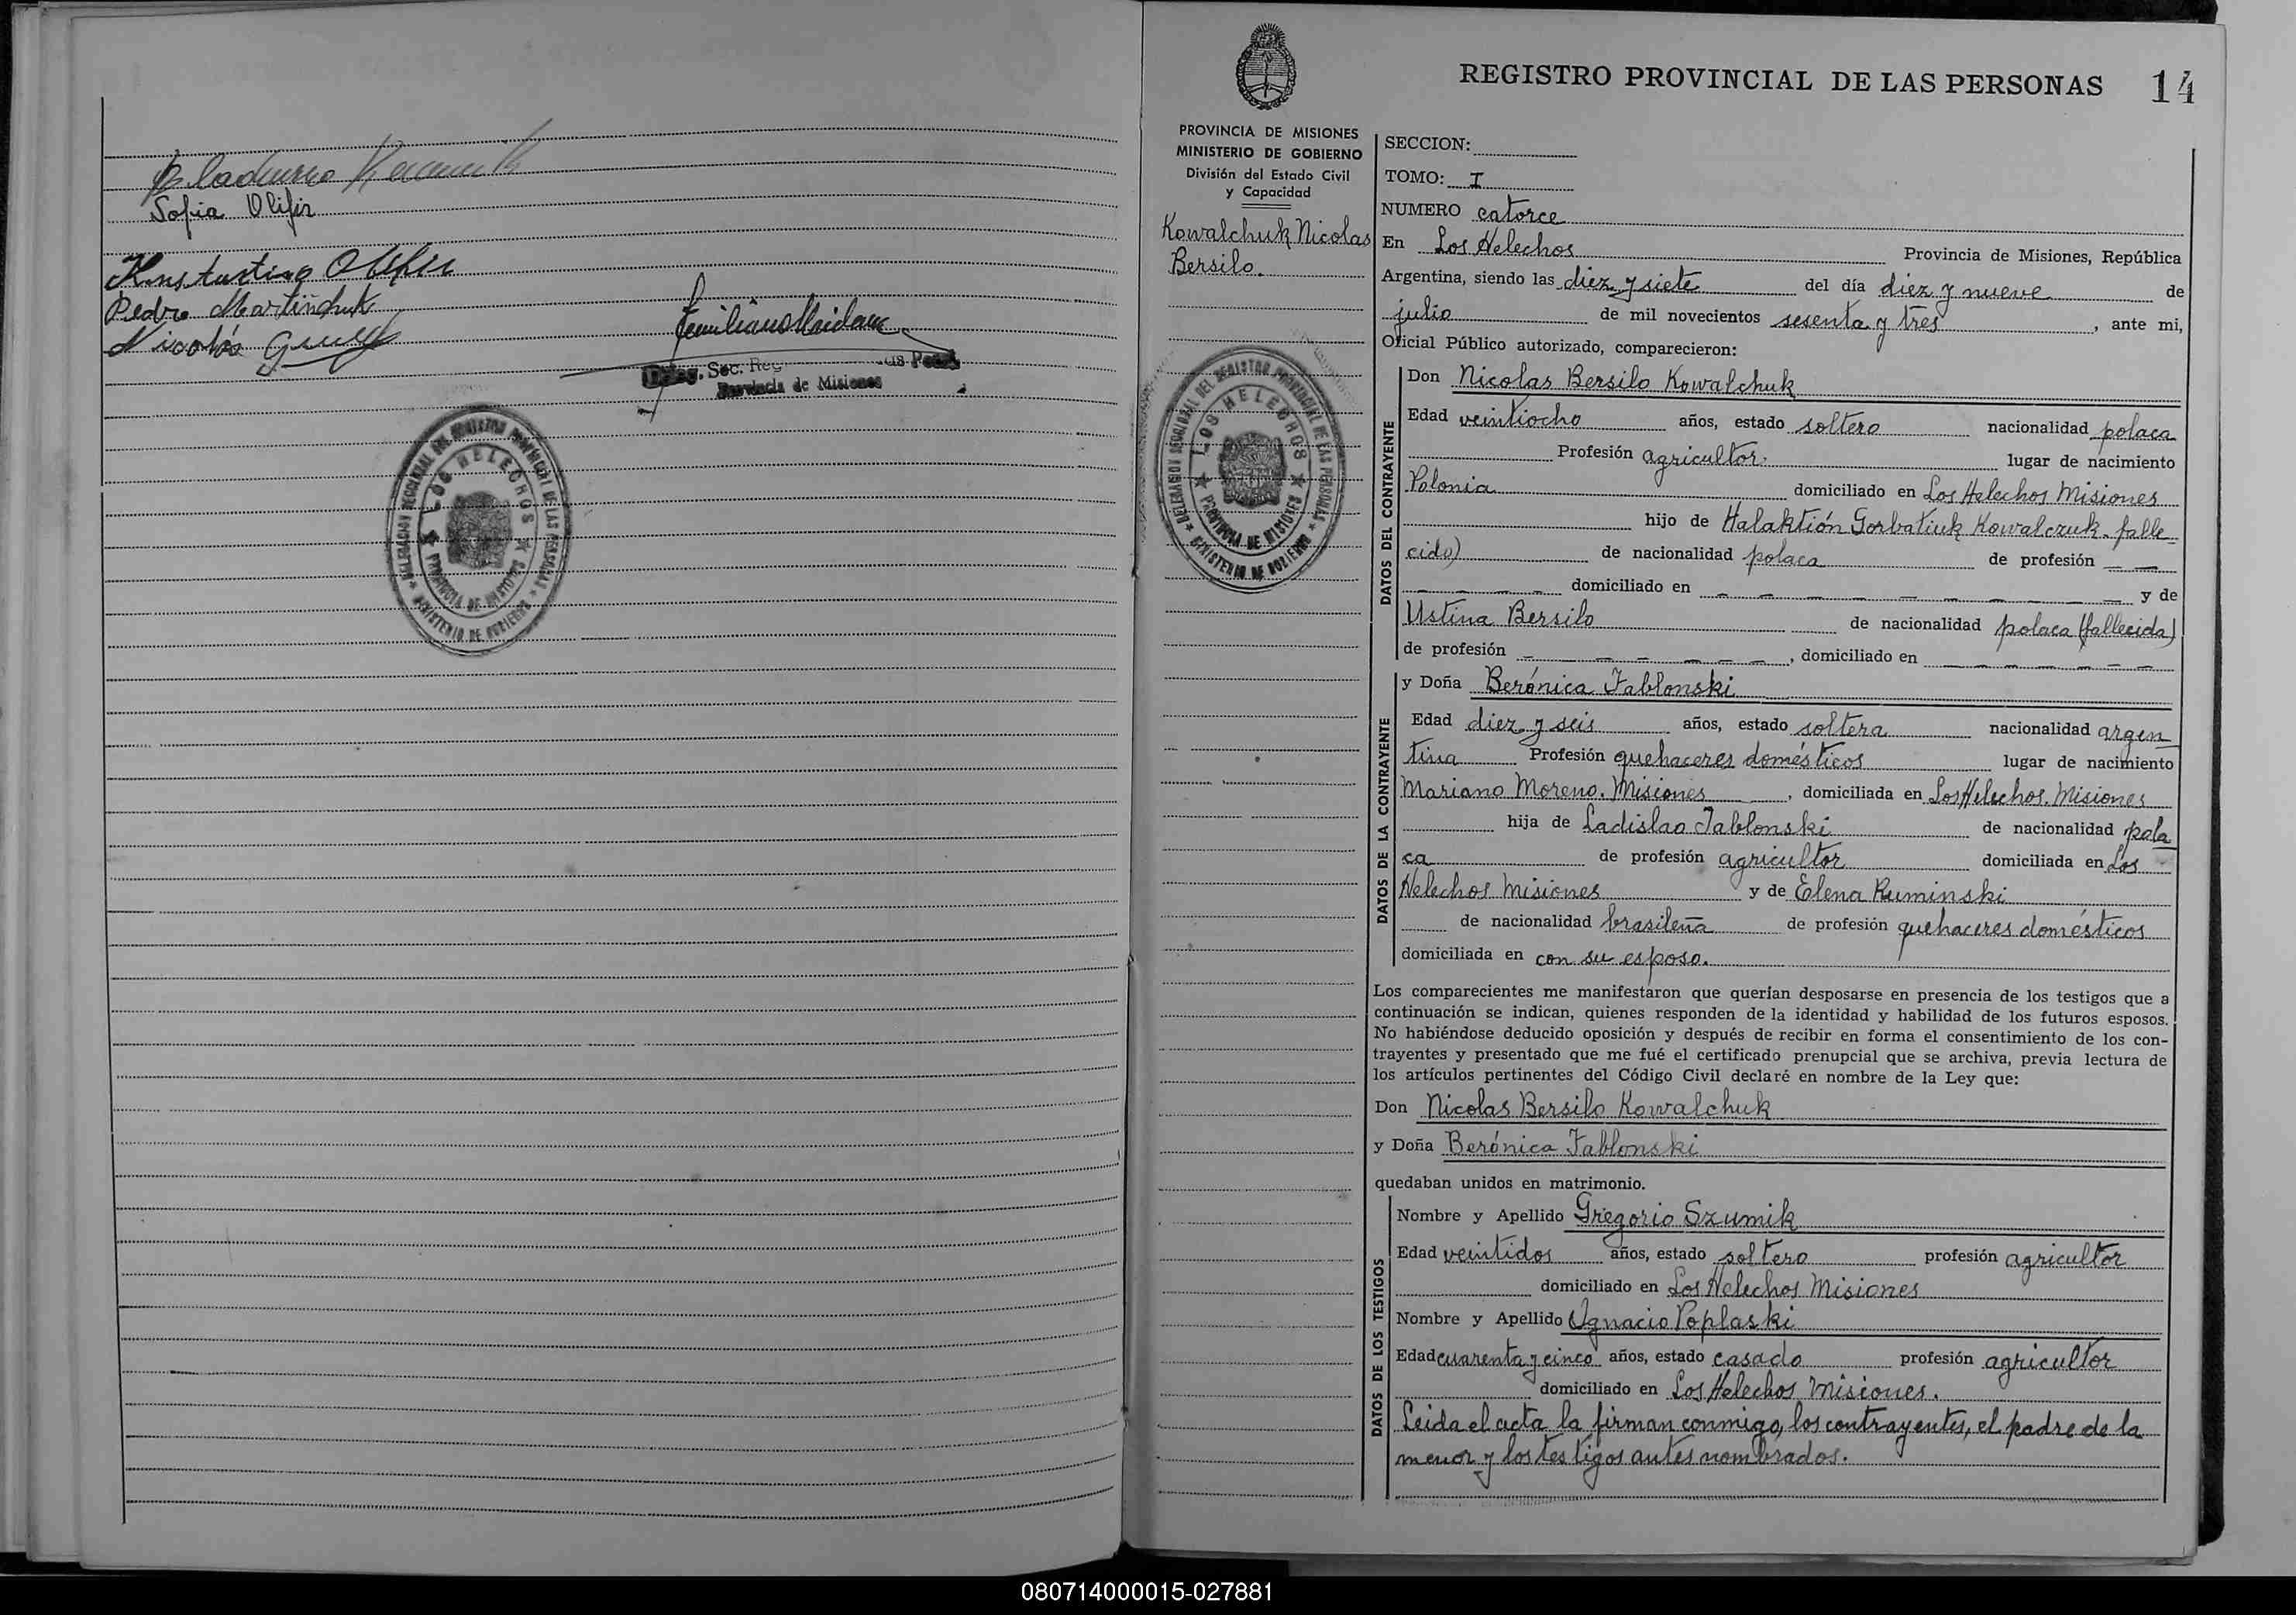 Sofia Olifir
Pedro Martinchuk
Nicolás
Deleg. Sec. Reg. Pers.
Provincia de Misiones
DELEGACION SECCIONAL DEL REGISTRO PROVINCIAL DE LAS PERSONAS
LOS HELECHOS
PROVINCIA DE MISIONES
MINISTERIO DE GOBIERNO
REGISTRO PROVINCIAL DE LAS PERSONAS 14
PROVINCIA DE MISIONES
MINISTERIO DE GOBIERNO
División del Estado Civil
y Capacidad
Kowalchuk Nicolas
Bersilo.
DELEGACION SECCIONAL DEL REGISTRO PROVINCIAL DE LAS PERSONAS
LOS HELECHOS
PROVINCIA DE MISIONES
MINISTERIO DE GOBIERNO
SECCION:
TOMO: I
NUMERO catorce
En Los Helechos Provincia de Misiones, República
Argentina, siendo las diez y siete del día diez y nueve de
julio de mil novecientos sesenta y tres, ante mi,
Oficial Público autorizado, comparecieron:
DATOS DEL CONTRAYENTE
Don Nicolas Bersilo Kowalchuk
Edad veintiocho años, estado soltero nacionalidad polaca
Profesión agricultor. lugar de nacimiento
Polonia domiciliado en Los Helechos Misiones
hijo de Halaktión Gorbatiuk Kowalczuk. falle
cido) de nacionalidad polaca de profesión — —
domiciliado en — — — — — — — y de
Ustina Bersilo de nacionalidad polaca (fallecida)
de profesión — — — — — —, domiciliado en — — — — — — —
DATOS DE LA CONTRAYENTE
y Doña Berónica Jablonski
Edad diez y seis años, estado soltera nacionalidad argen
tina Profesión quehaceres domésticos lugar de nacimiento
Mariano Moreno. Misiones, domiciliada en Los Helechos. Misiones
hija de Ladislao Jablonski de nacionalidad pola
ca de profesión agricultor domiciliada en Los
Helechos Misiones y de Elena Ruminski
de nacionalidad brasileña de profesión quehaceres domésticos
domiciliada en con su esposo.
Los comparecientes me manifestaron que querían desposarse en presencia de los testigos que a
continuación se indican, quienes responden de la identidad y habilidad de los futuros esposos.
No habiéndose deducido oposición y después de recibir en forma el consentimiento de los con-
trayentes y presentado que me fué el certificado prenupcial que se archiva, previa lectura de
los artículos pertinentes del Código Civil declaré en nombre de la Ley que:
Don Nicolas Bersilo Kowalchuk
y Doña Berónica Jablonski
quedaban unidos en matrimonio.
DATOS DE LOS TESTIGOS
Nombre y Apellido Gregorio Szumik
Edad veintidos años, estado soltero profesión agricultor
domiciliado en Los Helechos Misiones
Nombre y Apellido Ygnacio Poplaski
Edad cuarenta y cinco años, estado casado profesión agricultor
domiciliado en Los Helechos Misiones.
Leida el acta la firman conmigo, los contrayentes, el padre de la
menor y los testigos antes nombrados.
080714000015-027881